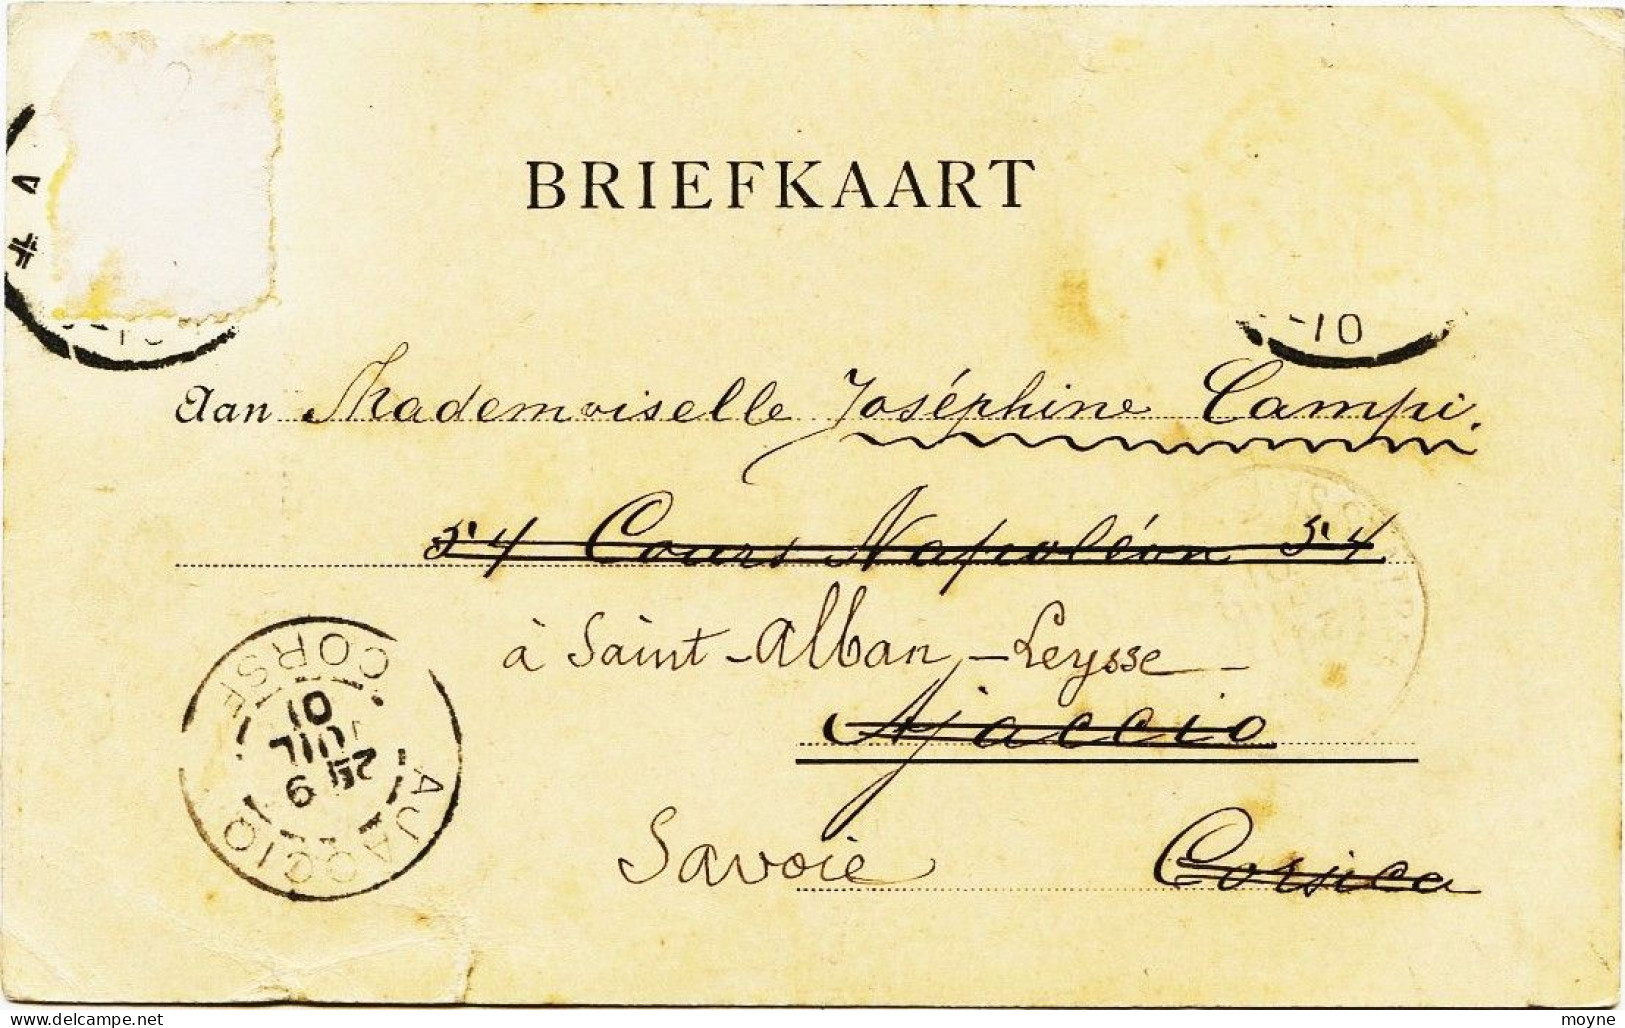 BRIEFKAART
-10
Aan Mademoiselle Joséphine Campi.
54 Cours Napoléon 54
à Saint-Alban-Leysse
Ajaccio
Savoie Corsica
AJACCIO CORSE
2E 9
JUIL
01
moyne